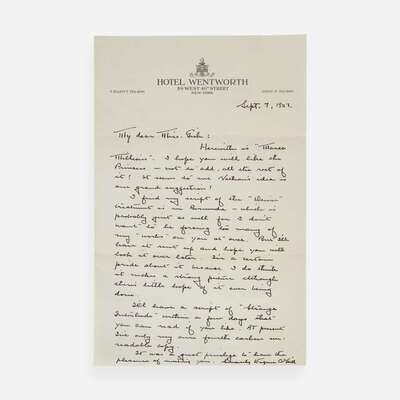 HOTEL WENTWORTH
59 WEST 46th STREET
NEW YORK
Sept. 7, 1927.
My dear Miss. Gish:
Herewith is "Marco
Millions". I hope you will like the
Princess - not to add, all the rest of
it! It seems to me Nathan's idea is
one grand suggestion!
I find my script of the
treatment is in Bermuda - which is
probably just as well for I don't
want to be forcing too many of
my "works" on you at once. But I'll
have it sent up and hope you will
look at it later. I've a certain
pride about it because I do think
it makes a strong picture although
there's little hope of it ever being
done.
I'll have a script of "Strange
Interlude" within a few days that
you can read if you like. At present
I've only my own fourth carbon un-
readable copy.
It was a great privilege to have the
pleasure of meeting you.